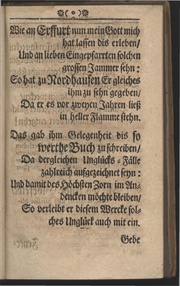 Wie an Erffurt nun mein Gott mich
hat lassen dis erleben/
Und an lieben Eingepfarrten solchen
grossen Jammer sehn:
So hat zu Nordhausen Er gleiches
ihm zu sehn gegeben/
Da er es vor zweyen Jahren ließ
in heller Flamme stehn.
Das gab ihm Gelegenheit dis so
werthe Buch zu schreiben/
Da dergleichen Unglücks-Fälle
zahlreich aufgezeichnet seyn:
Und damit des Höchsten Zorn im An-
dencken möchte bleiben/
So verleibt er diesem Wercke sol-
ches Unglück auch mit ein.
Gebe